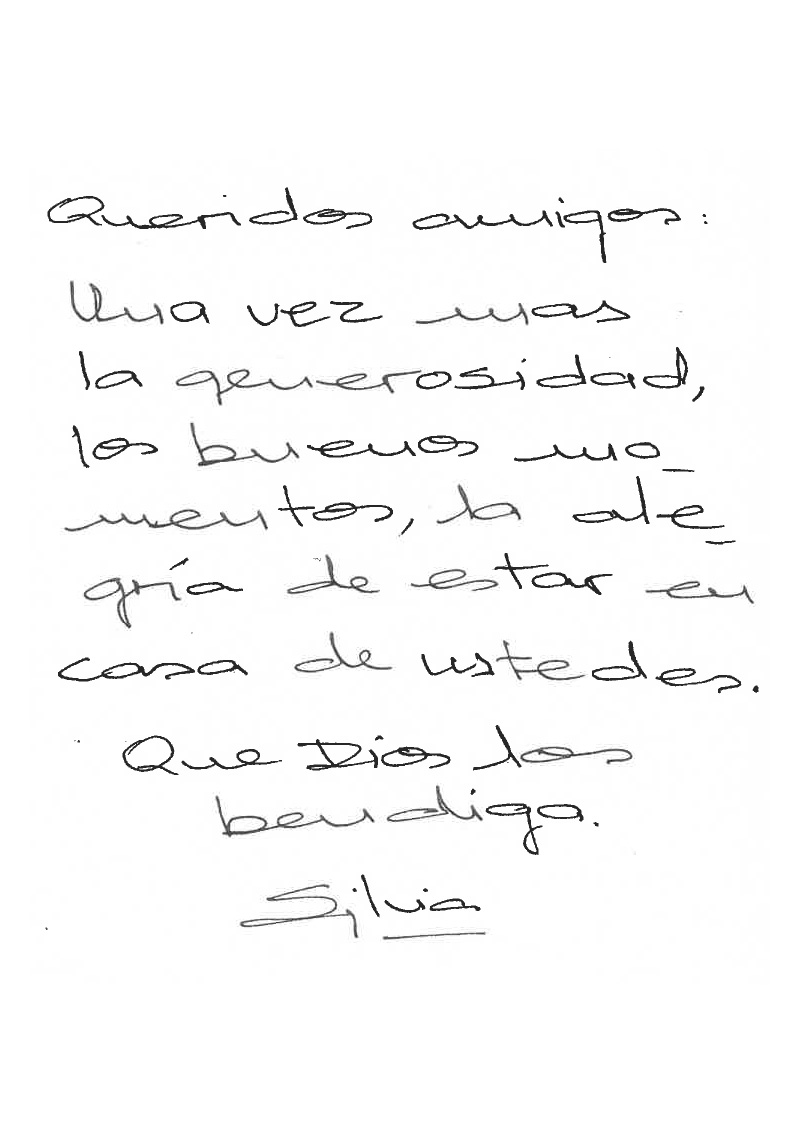 Queridos amigos:
Una vez mas
la generosidad,
los buenos mo_
mentos, la ale_
gría de estar en
casa de ustedes.
Que Dios los
bendiga.
Silvia